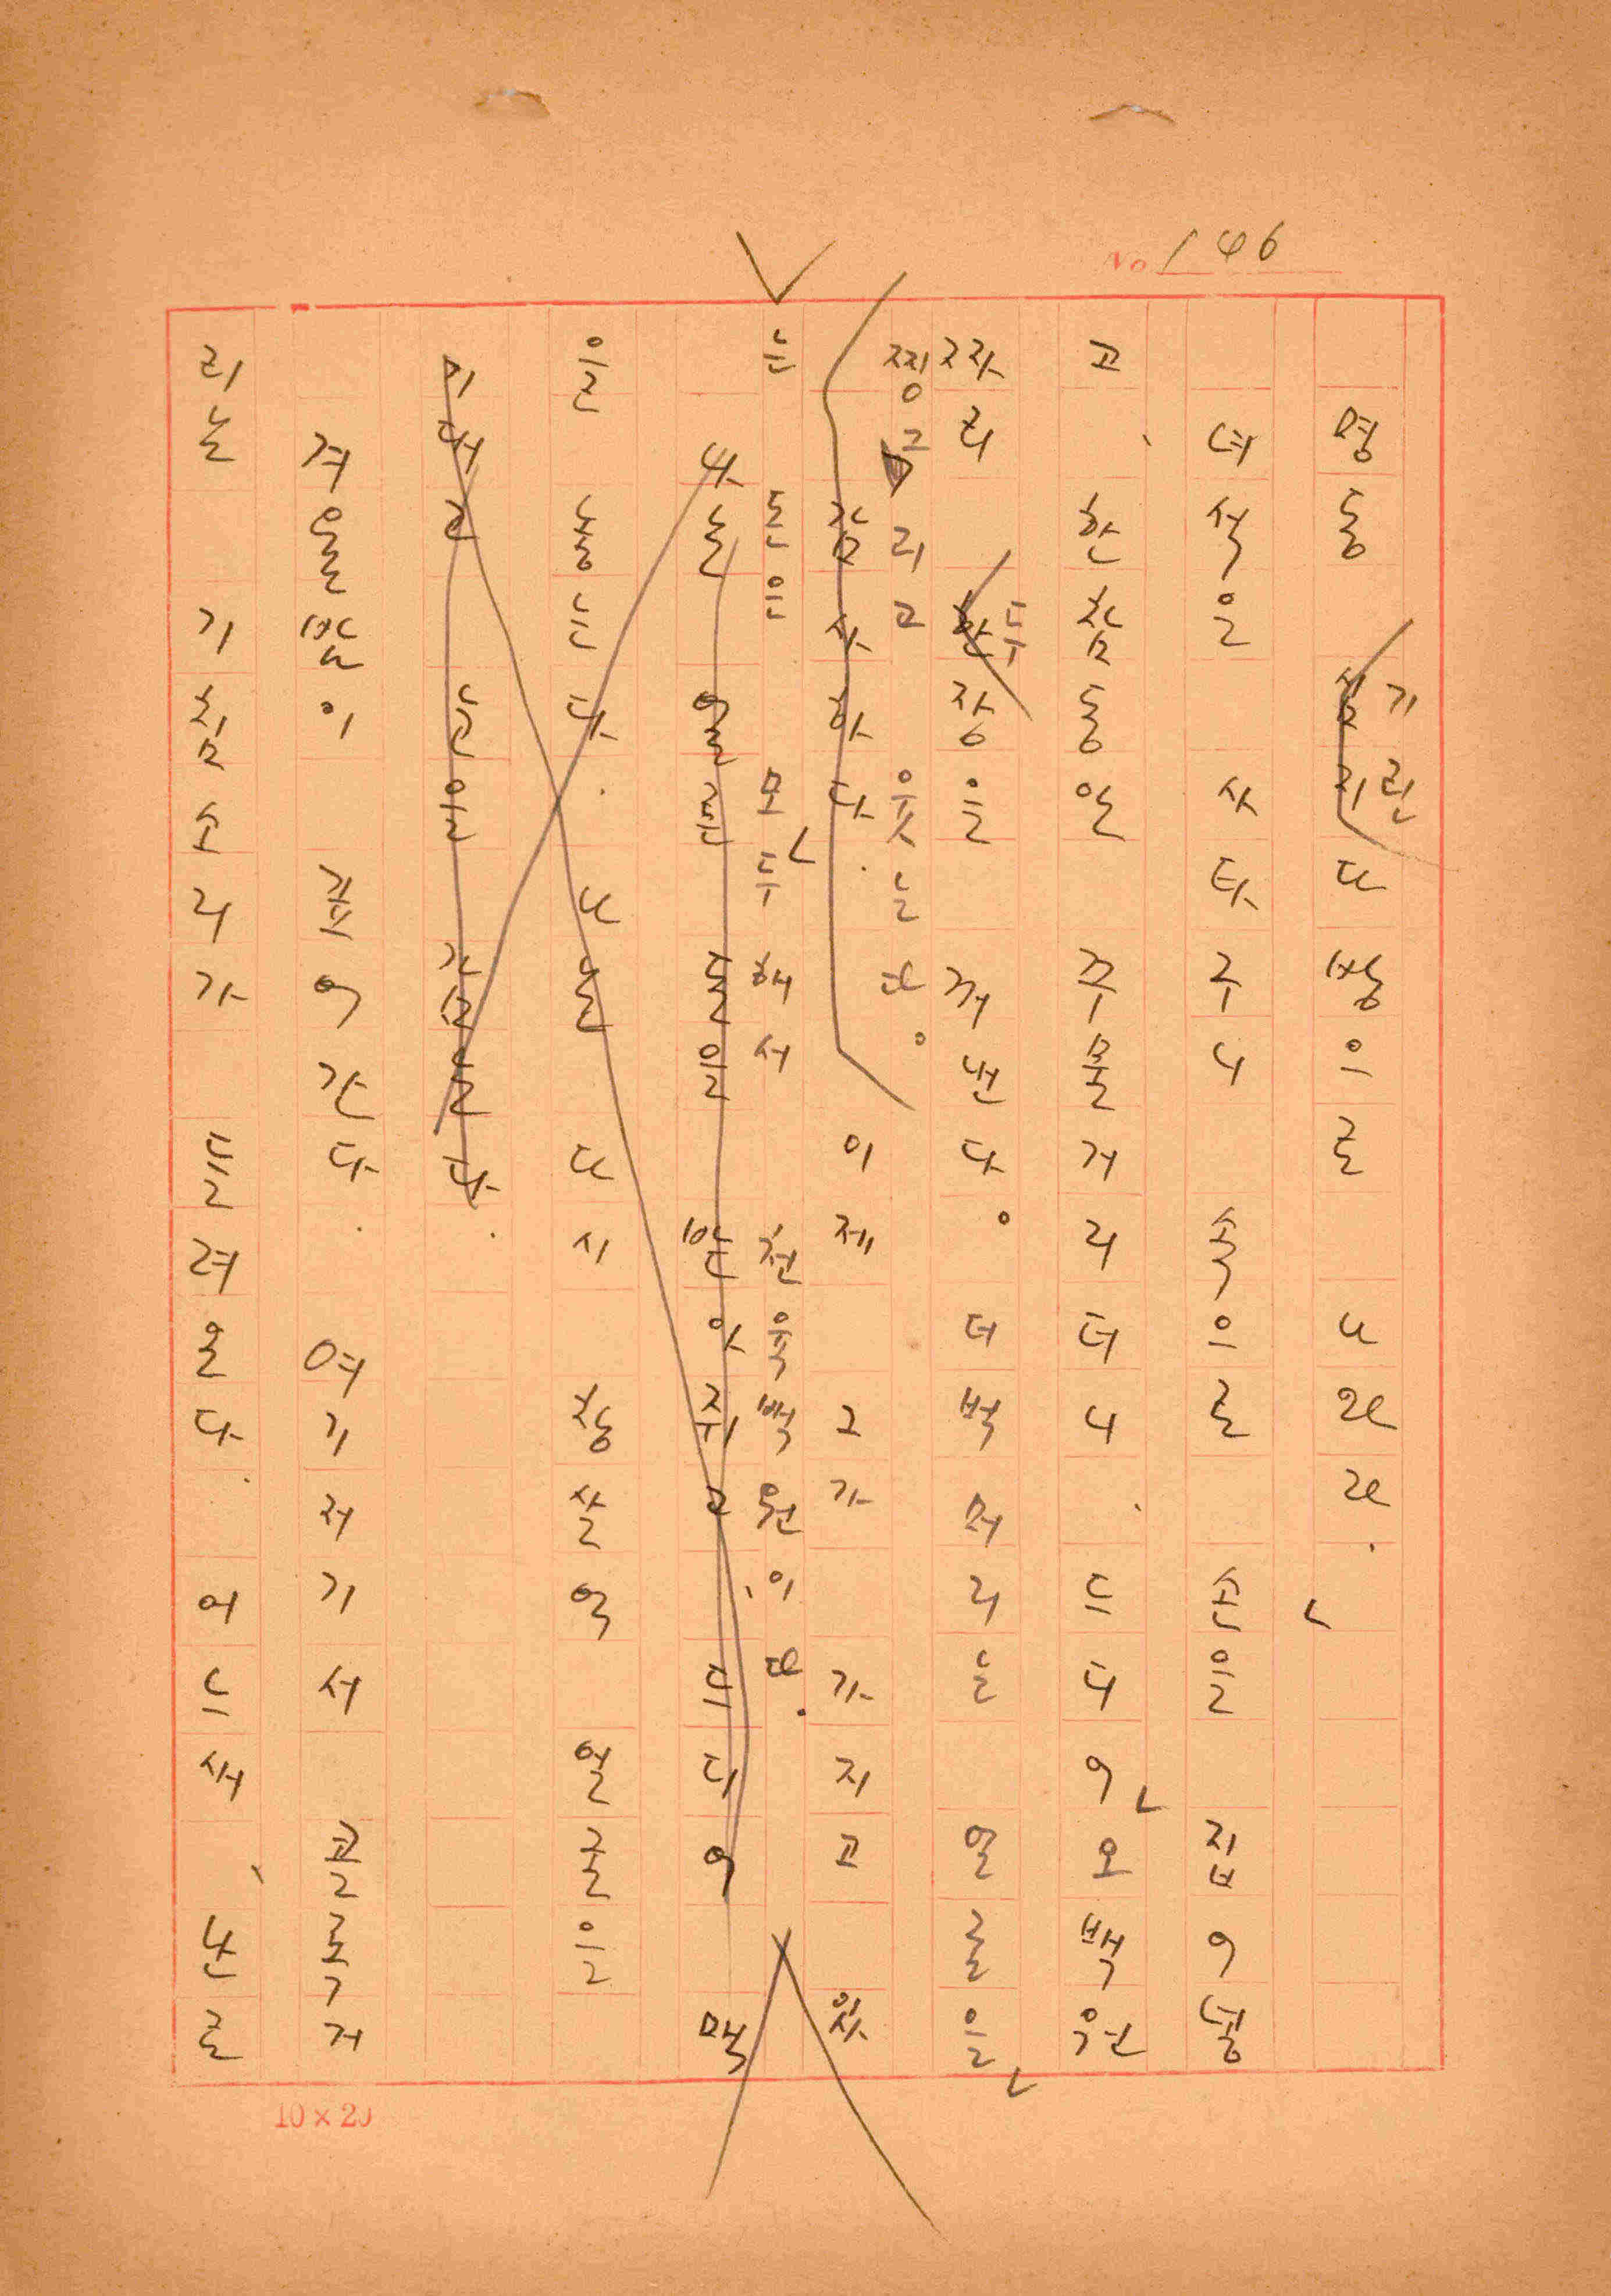 No 146
명동 기린 다방으로 나와라.
녀석은 사타구니 속으로 손을 집어넣
고, 한참동안 주물거리더니, 드디어 오백원
짜리 한 두 장을 꺼낸다. 더벅머리는 얼굴을
찡그리고 웃는다.
감사하다. 이제 그가 가지고 있
는 돈은 모두해서 천육백원이다.
받아쥐고, 드디어 맥
을 놓는다. 나는 다시 창살에 얼굴을
기대고 눈을 감는다.
겨울밤이 깊어간다 . 여기저기서 콜록거
리는 기침소리가 들려온다. 어느새, 난로
10×20